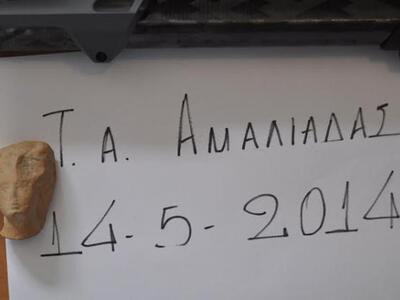 Τ.Α. ΑΜΑΛΙΑΔΑΣ
14-5-2014